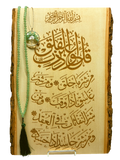 بسم الله الرحمن الرحيم
قل أعوذ برب الفلق
من شر ما خلق
ومن شر غاسق إذا وقب
ومن شر النفاثات في العقد
ومن شر حاسد إذا حسد